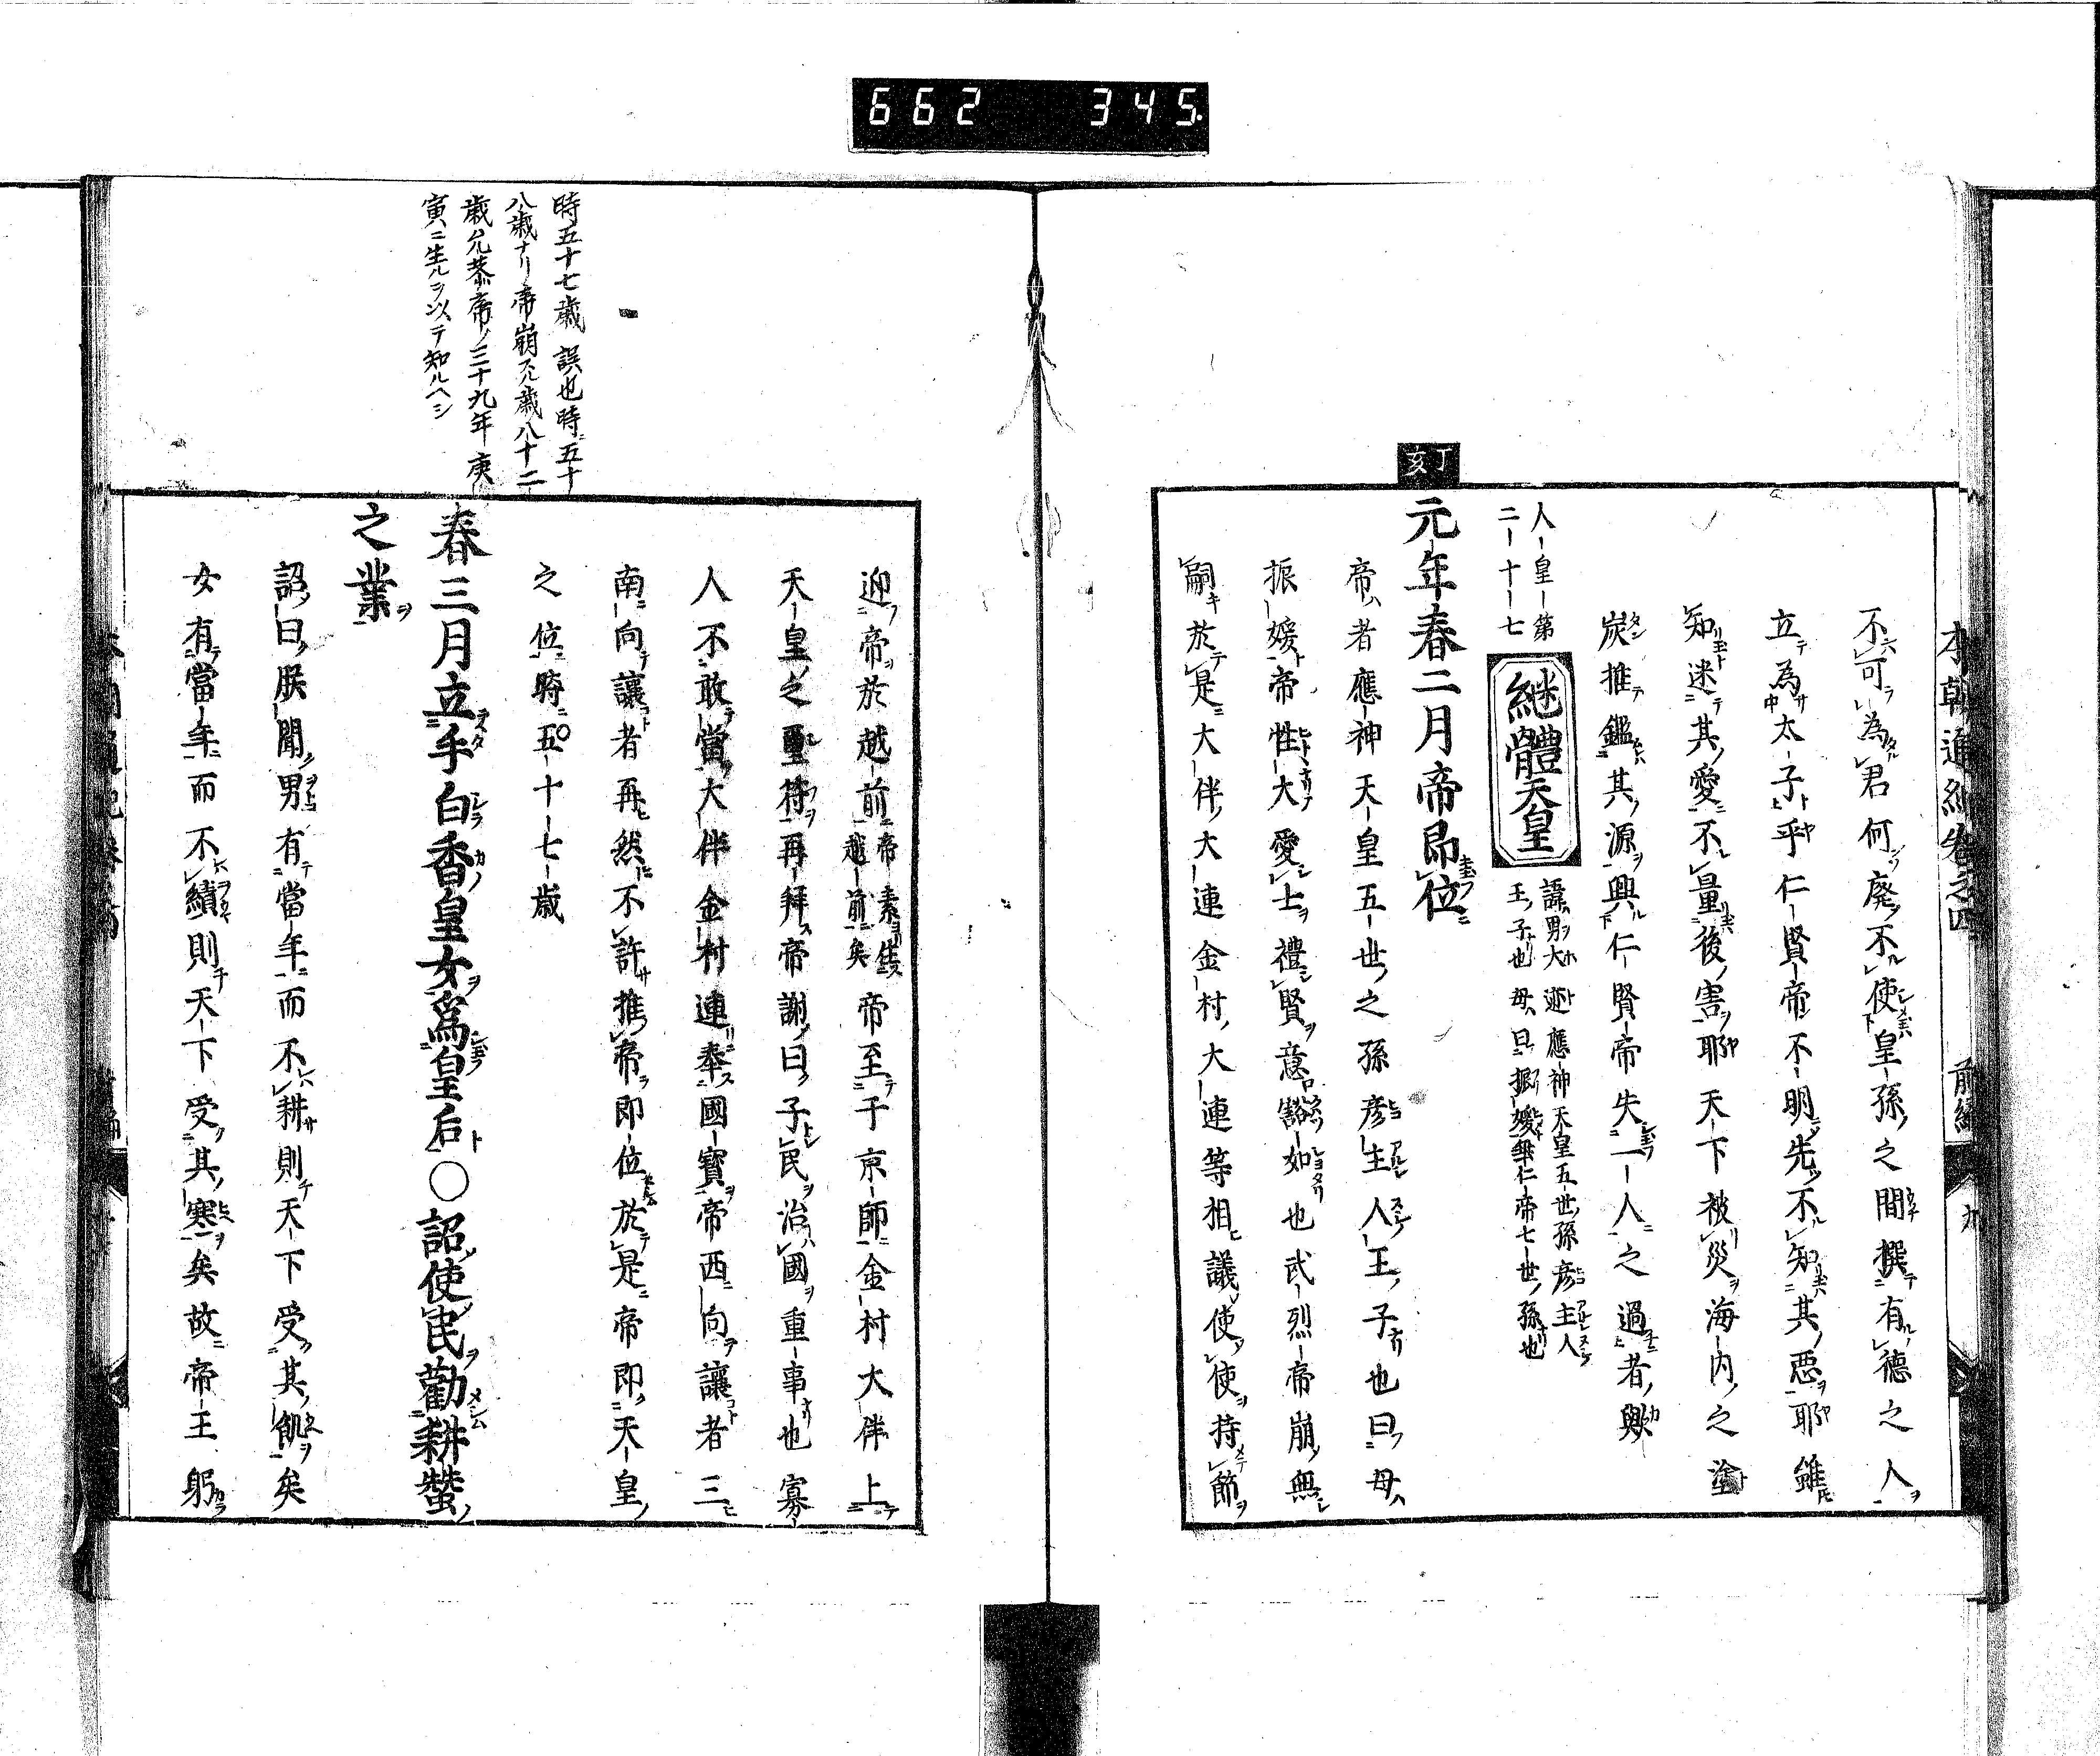 662 345
本朝通紀卷之四 前編 九
不可為君何廢不使皇孫之間撰有德之人
立為太子乎仁賢帝不明先不知其惡耶雖
知迷其愛不量後害耶天下被災海内之塗
炭推鑑其源興仁賢帝失一人之過者歟
人皇第
二十七
継體天皇
諱男大迹應神天皇五世孫彦主人
王子也母曰振媛垂仁帝七世孫也
丁亥
元年春二月帝即位
帝者應神天皇五世之孫彦主人王子也曰母
振媛帝性大愛士禮賢意豁如也武烈帝崩無
嗣於是大伴大連金村大連等相議使使持節
時五十七歳 誤也時ニ五十
八歳ナリ帝崩スル歳八十二
歳允恭帝ノ三十九年庚
寅ニ生ルヲ以テ知ルヘシ
迎帝於越前帝素住越前矣帝至于京師金村大伴上
天皇之璽符再拜帝謝曰子民治國重事也寡
人不敢當大伴金村連奉國寶帝西向讓者三
南向讓者再然不許推帝即位於是帝即天皇
之位時五十七歳
春三月立手白香皇女爲皇后〇詔使民勸耕蠶
之業
詔曰朕聞男有當年而不耕則天下受其飢矣
女有當年而不績則天下受其寒矣故帝王躬